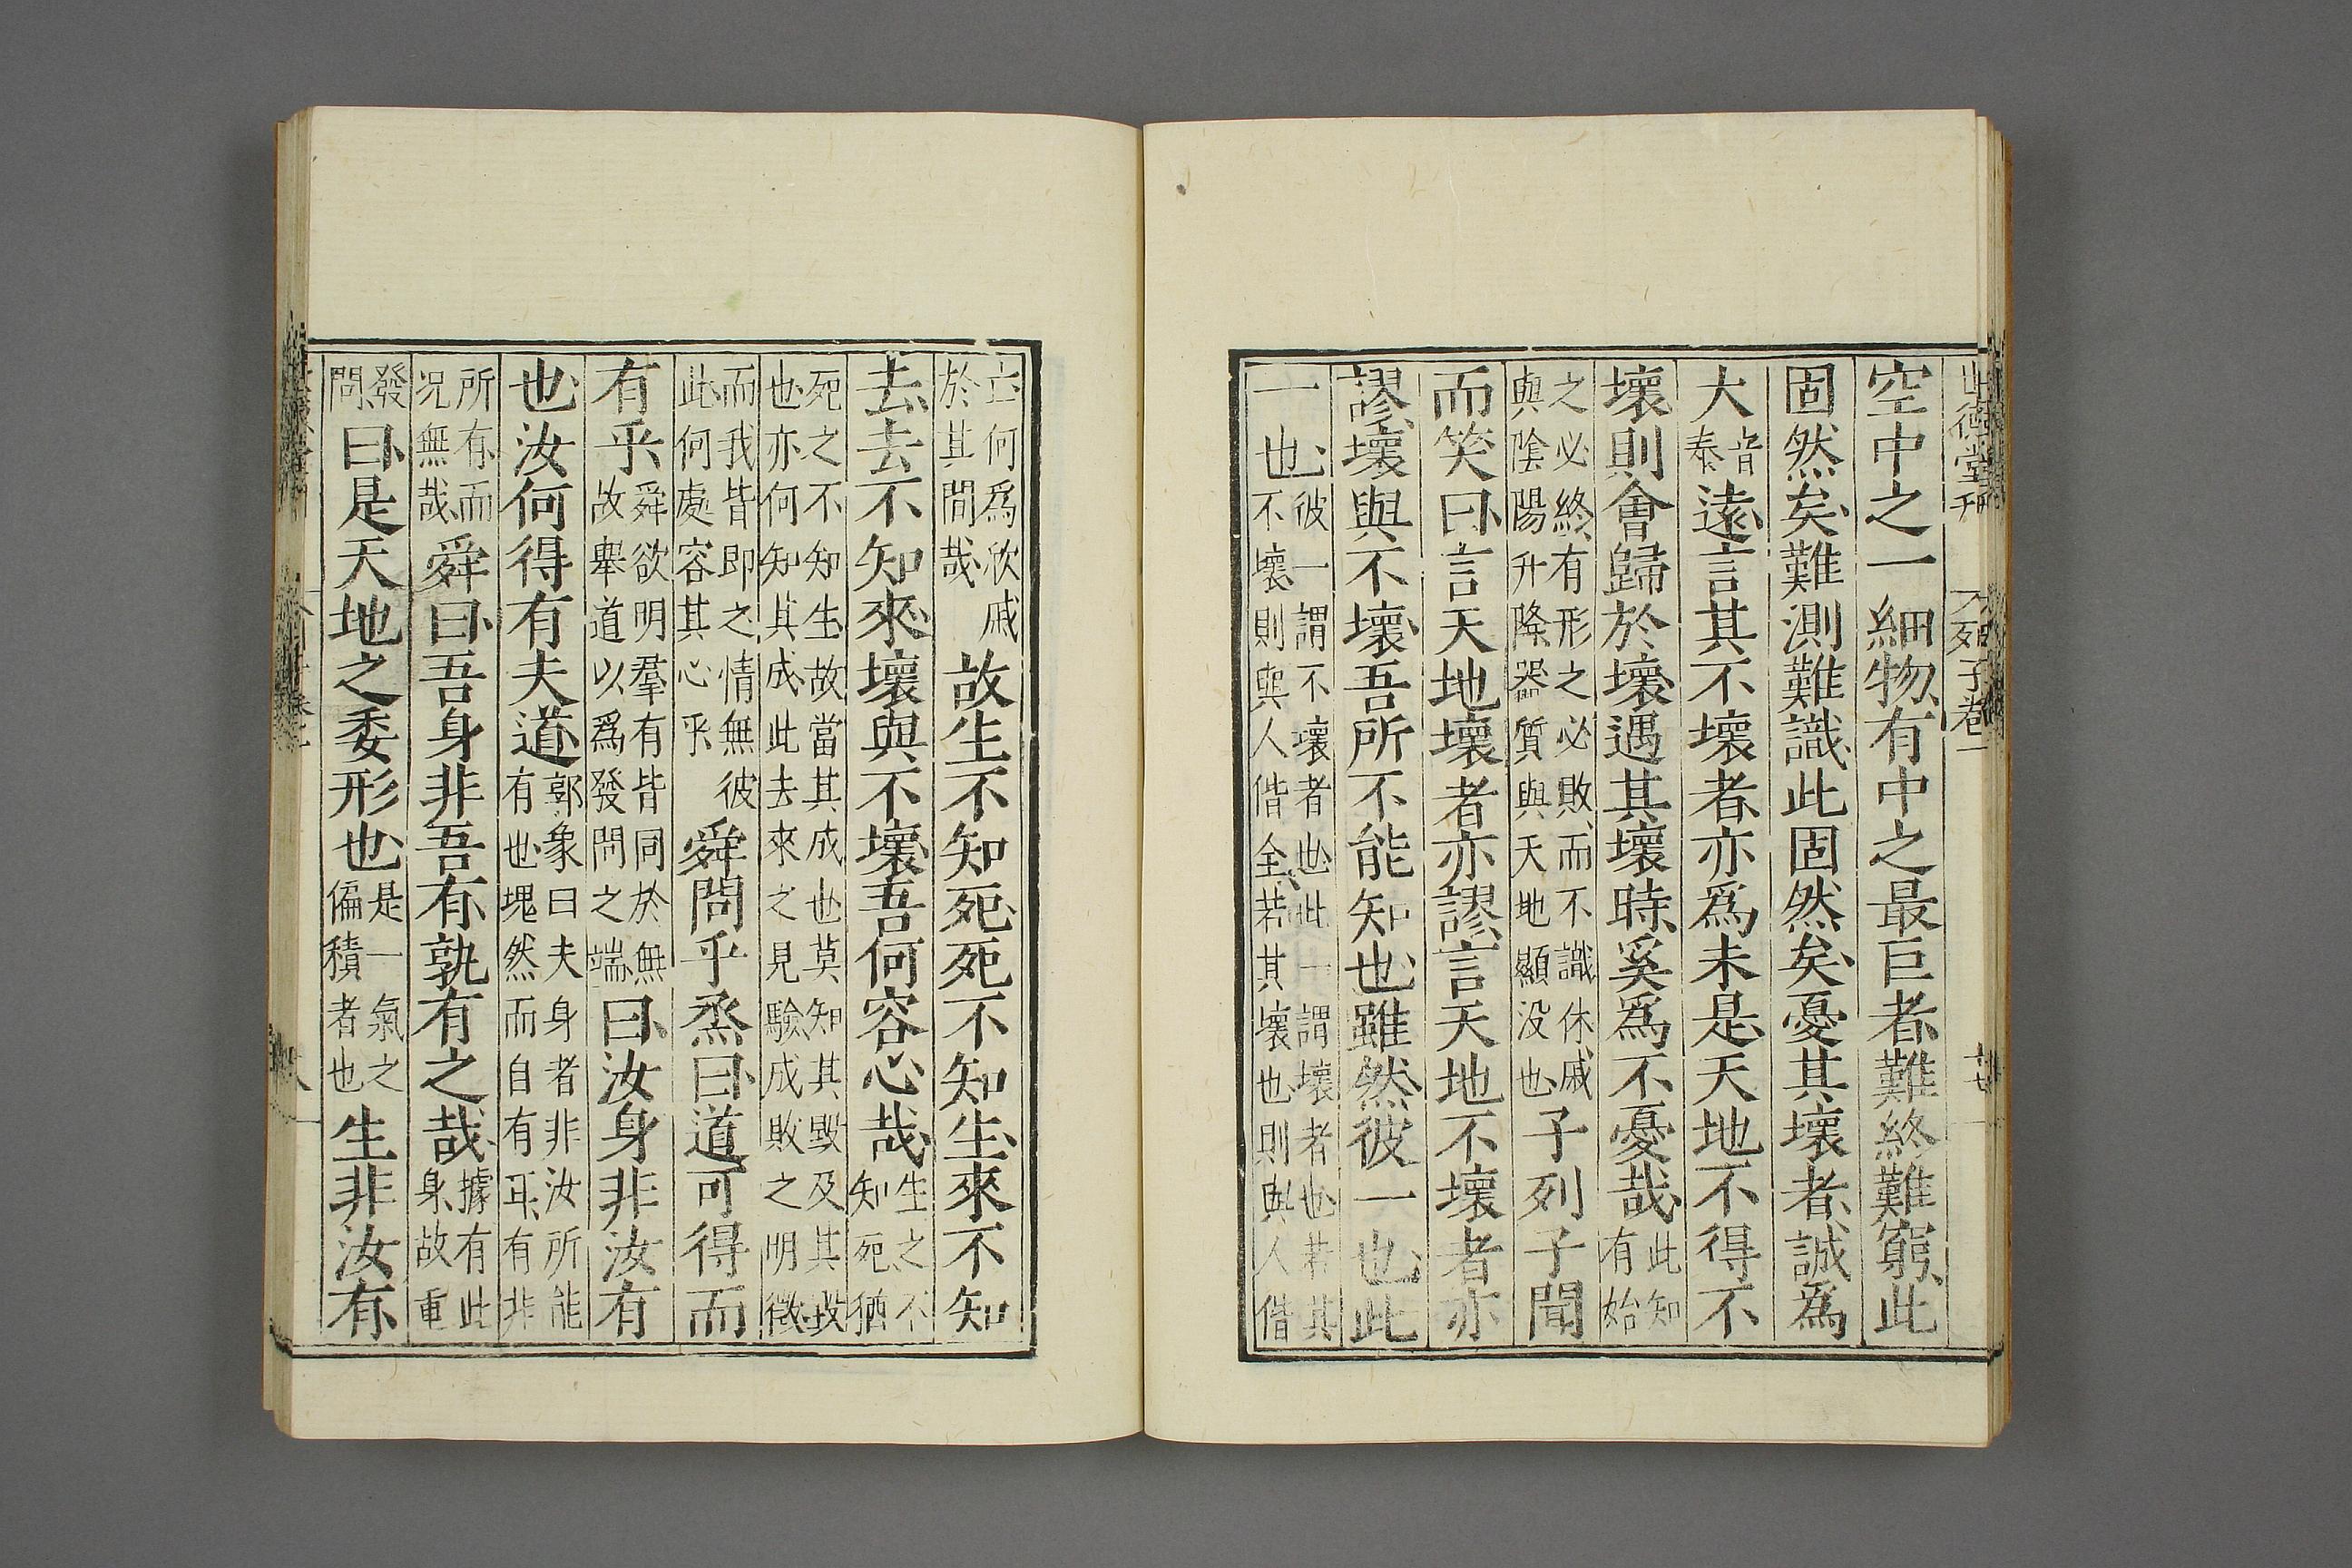 世德堂刊 列子卷一
空中之一細物有中之最巨者難終難窮此
固然矣難測難識此固然矣憂其壞者誠爲
大音泰遠言其不壞者亦爲未是天地不得不
壞則會歸於壞遇其壞時奚爲不憂哉此知有始
之必終有形之必敗而不識休戚與陰陽升降器質與天地顯没也子列子聞
而笑曰言天地壞者亦謬言天地不壞者亦
謬壞與不壞吾所不能知也雖然彼一也此
一也彼一謂不壞者也此一謂壞者也若其不壞則與人偕全若其壞也則與人偕
亡何爲欣戚於其間哉故生不知死死不知生來不知
去去不知來壞與不壞吾何容心哉生之不知死猶
死之不知生故當其成也莫知其毀及其毀也亦何知其成此去來之見驗成敗之明徵
而我皆即之情無彼此何處容其心乎舜問乎烝曰道可得而
有乎舜欲明羣有皆同於無故舉道以爲發問之端曰汝身非汝有
也汝何得有夫道郭象曰夫身者非汝所能有也塊然而自有耳有非
所有而况無哉舜曰吾身非吾有孰有之哉據有此身故重
發問曰是天地之委形也是一氣之偏積者也生非汝有